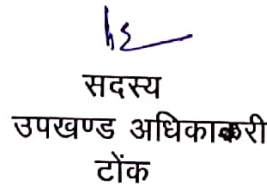 सदस्य
उपखण्ड अधिकारी
टोंक